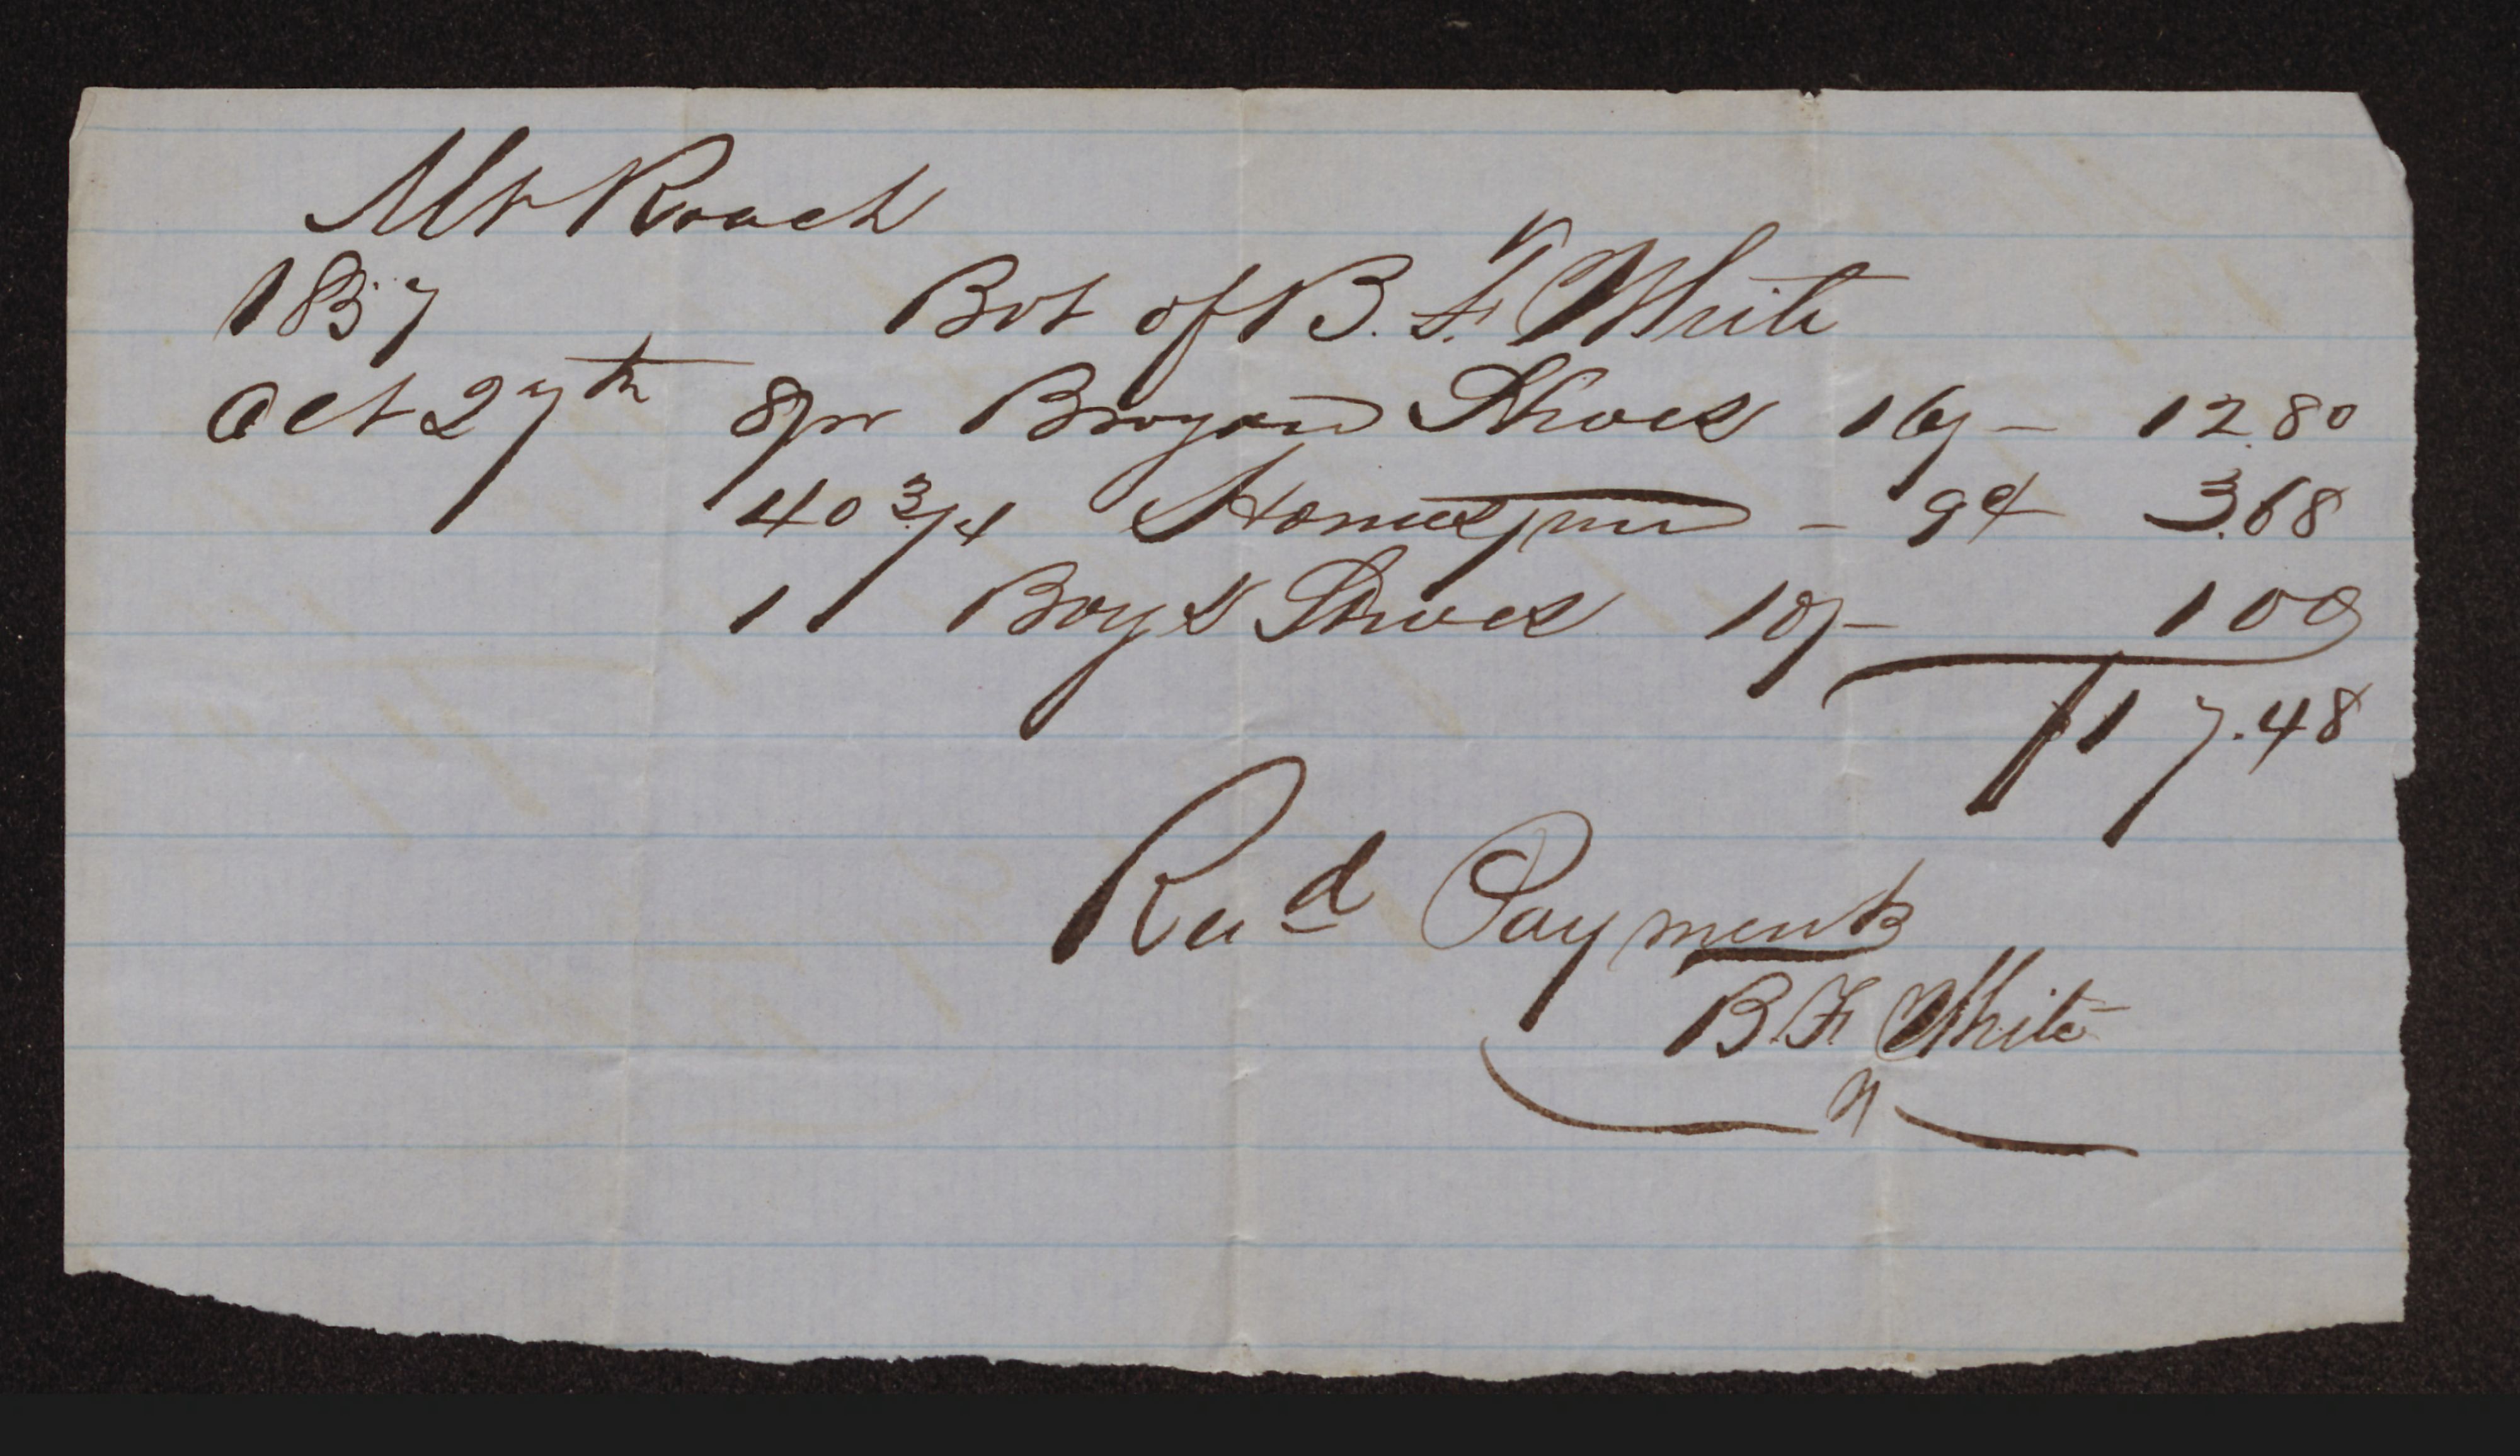 Mr Roach
1857 Bot of B. F. White
Oct 27th 8 pr Brogan Shoes 16/- 12.80
40 3/4 Homespun - 9¢ 3.68
1 " Boys Shoes 10/- 1 00
$17.48
Recd Payment
B. F. White